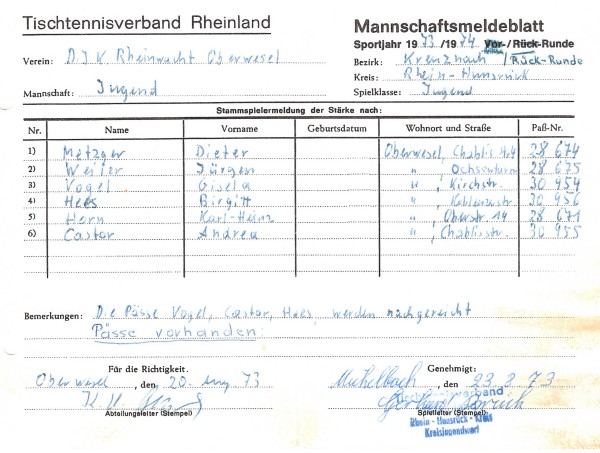 Tischtennisverband Rheinland
Mannschaftsmeldeblatt
Sportjahr 1973/1974 Vor-/Rück-Runde
Verein: D.J.K Rheinwacht Oberwesel
Bezirk: Kreuznach /Rück-Runde
Kreis: Rhein-Hunsrück
Mannschaft: Jugend
Spielklasse: Jugend
Stammspielermeldung der Stärke nach:
Nr. Name Vorname Geburtsdatum Wohnort und Straße Paß-Nr.
1) Metzger Dieter Oberwesel, Chablis 28 674
2) Weiler Jürgen " Ochsenturm 28 675
3) Vogel Gisela " , Kirchstr. 30 954
4) Hees Birgitt " , Koblenzerstr. 30 956
5) Horn Karl-Heinz " , Oberstr. 14 28 671
6) Castor Andrea " , Chablisstr. 30 955
Bemerkungen: Die Pässe Vogel, Castor, Hees, werden nachgereicht
Pässe vorhanden:
Für die Richtigkeit. Genehmigt:
Oberwesel, den, 20. Aug 73 Michelbach, den 23.8.73
Tischtennisverband
Abteilungsleiter (Stempel) Spielleiter (Stempel)
Rhein-Hunsrück-Kreis
Kreisjugendwart